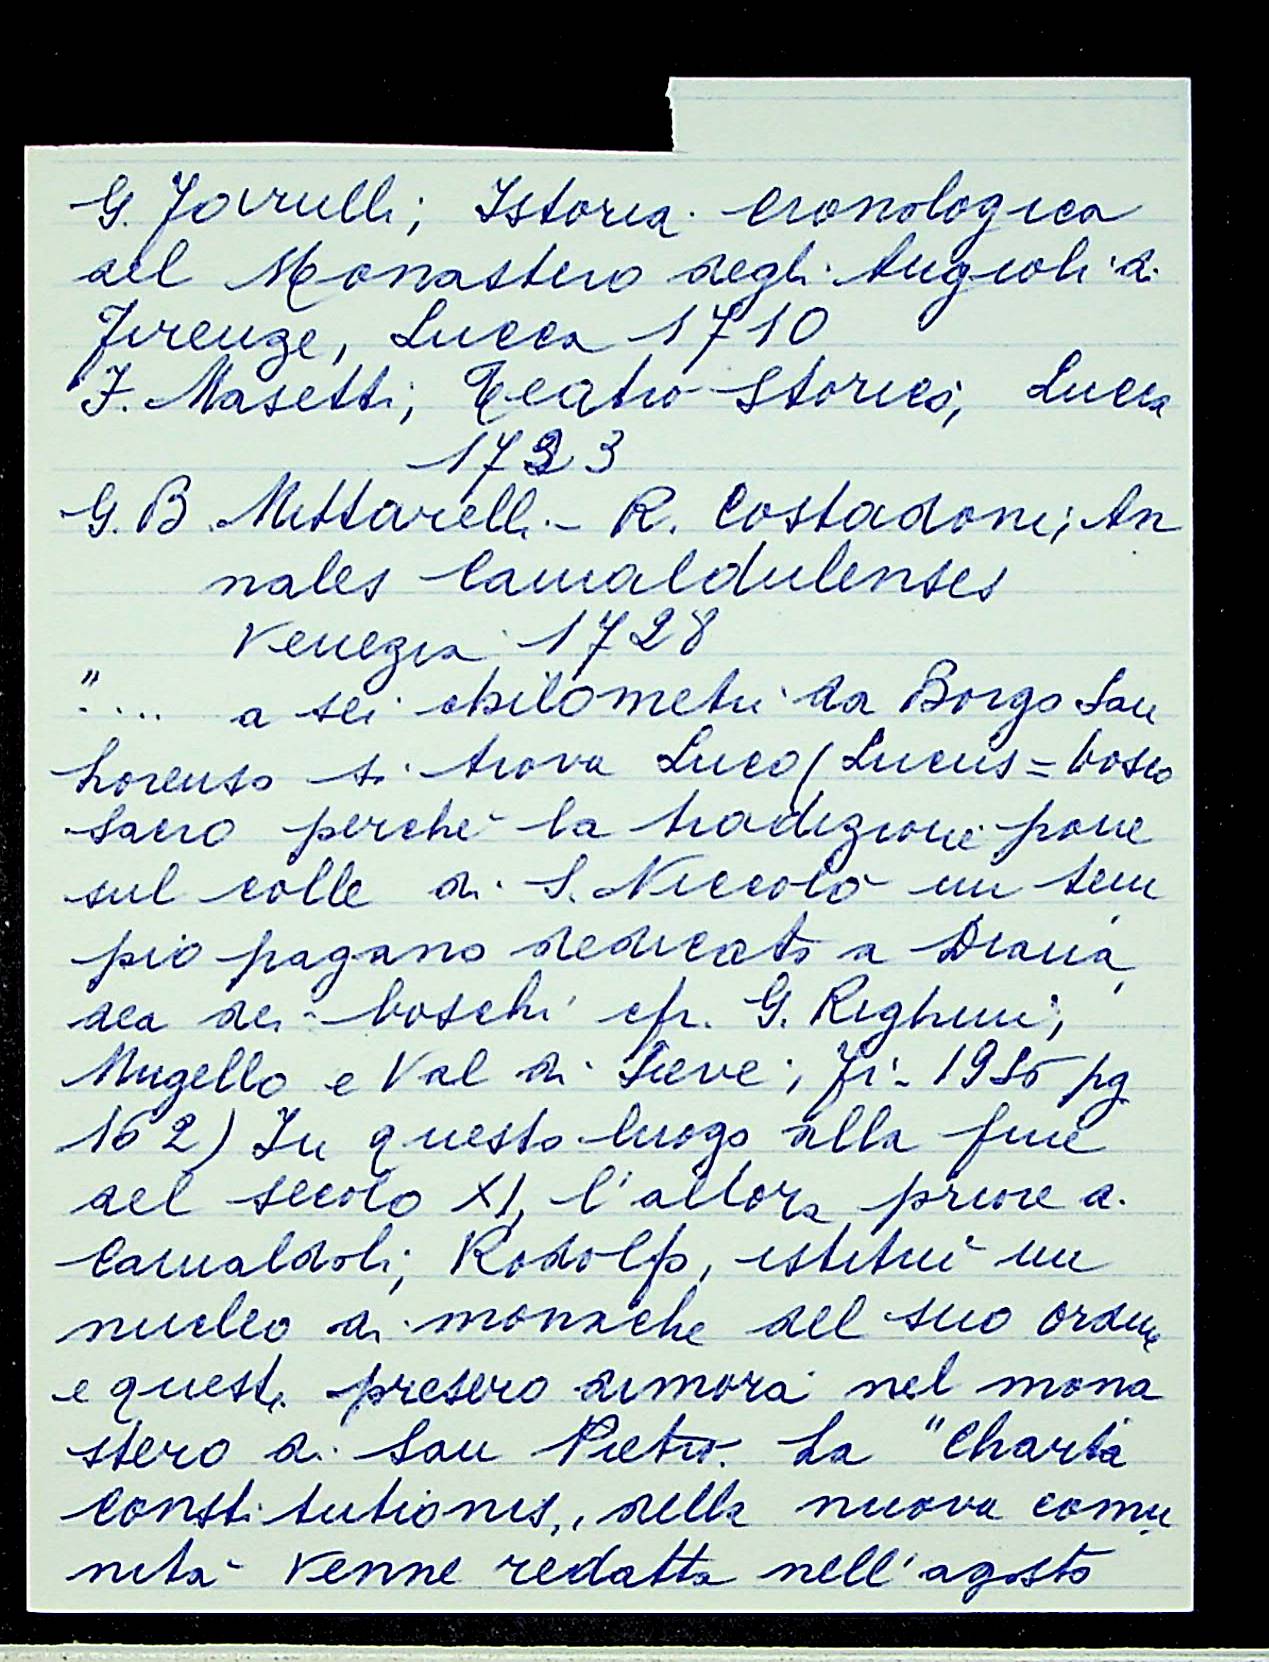 G. Farulli; Istoria cronologica
del Monastero degli Angioli di
Firenze, Lucca 1710
F. Masetti; Teatro Storico; Lucca
1723
G. B. Mittarelli - R. Costadoni; An
nales Camaldulenses
Venezia 1728
".... a sei chilometri da Borgo San
Lorenzo si trova Luco (Lucus = bosco
sacro perché la tradizione pone
sul colle di S. Niccolò un tem
pio pagano dedicato a Diana,
dea dei boschi cfr. G. Righini;
Mugello e Val di Sieve; Fi - 1956 pg
162) In questo luogo alla fine
del secolo XI, l'allora priore di
Camaldoli; Rodolfo, istituì un
nucleo di monache del suo ordine
e queste presero dimora nel mona
stero di San Pietro. La "Charta
Constitutionis,, della nuova comu
nità venne redatta nell'agosto